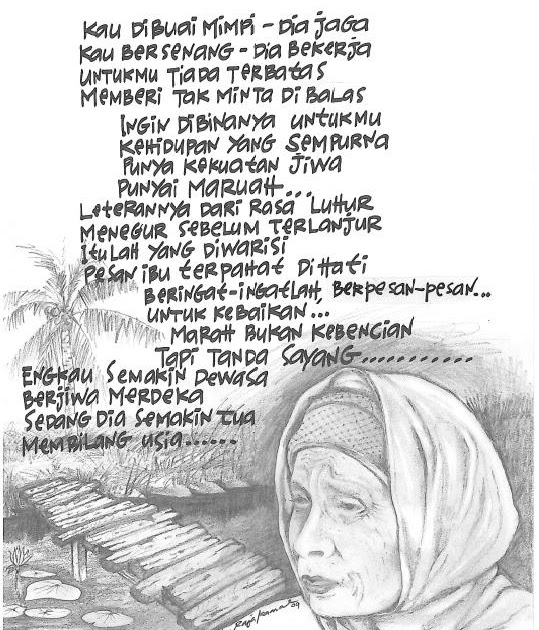 KAU DIBUAI MIMPI - DIA JAGA
KAU BERSENANG - DIA BEKERJA
UNTUKMU TIADA TERBATAS
MEMBERI TAK MINTA DI BALAS
INGIN DIBINANYA UNTUKMU
KEHIDUPAN YANG SEMPURNA
PUNYA KEKUATAN JIWA
PUNYAI MARUAH...
LETERANNYA DARI RASA LUHUR
MENEGUR SEBELUM TERLANJUR
ITULAH YANG DIWARISI
PESAN IBU TERPAHAT DIHATI
BERINGAT-INGATLAH, BERPESAN-PESAN...
UNTUK KEBAIKAN...
MARAH BUKAN KEBENCIAN
TAPI TANDA SAYANG...........
ENGKAU SEMAKIN DEWASA
BERJIWA MERDEKA
SEDANG DIA SEMAKIN TUA
MEMBILANG USIA......